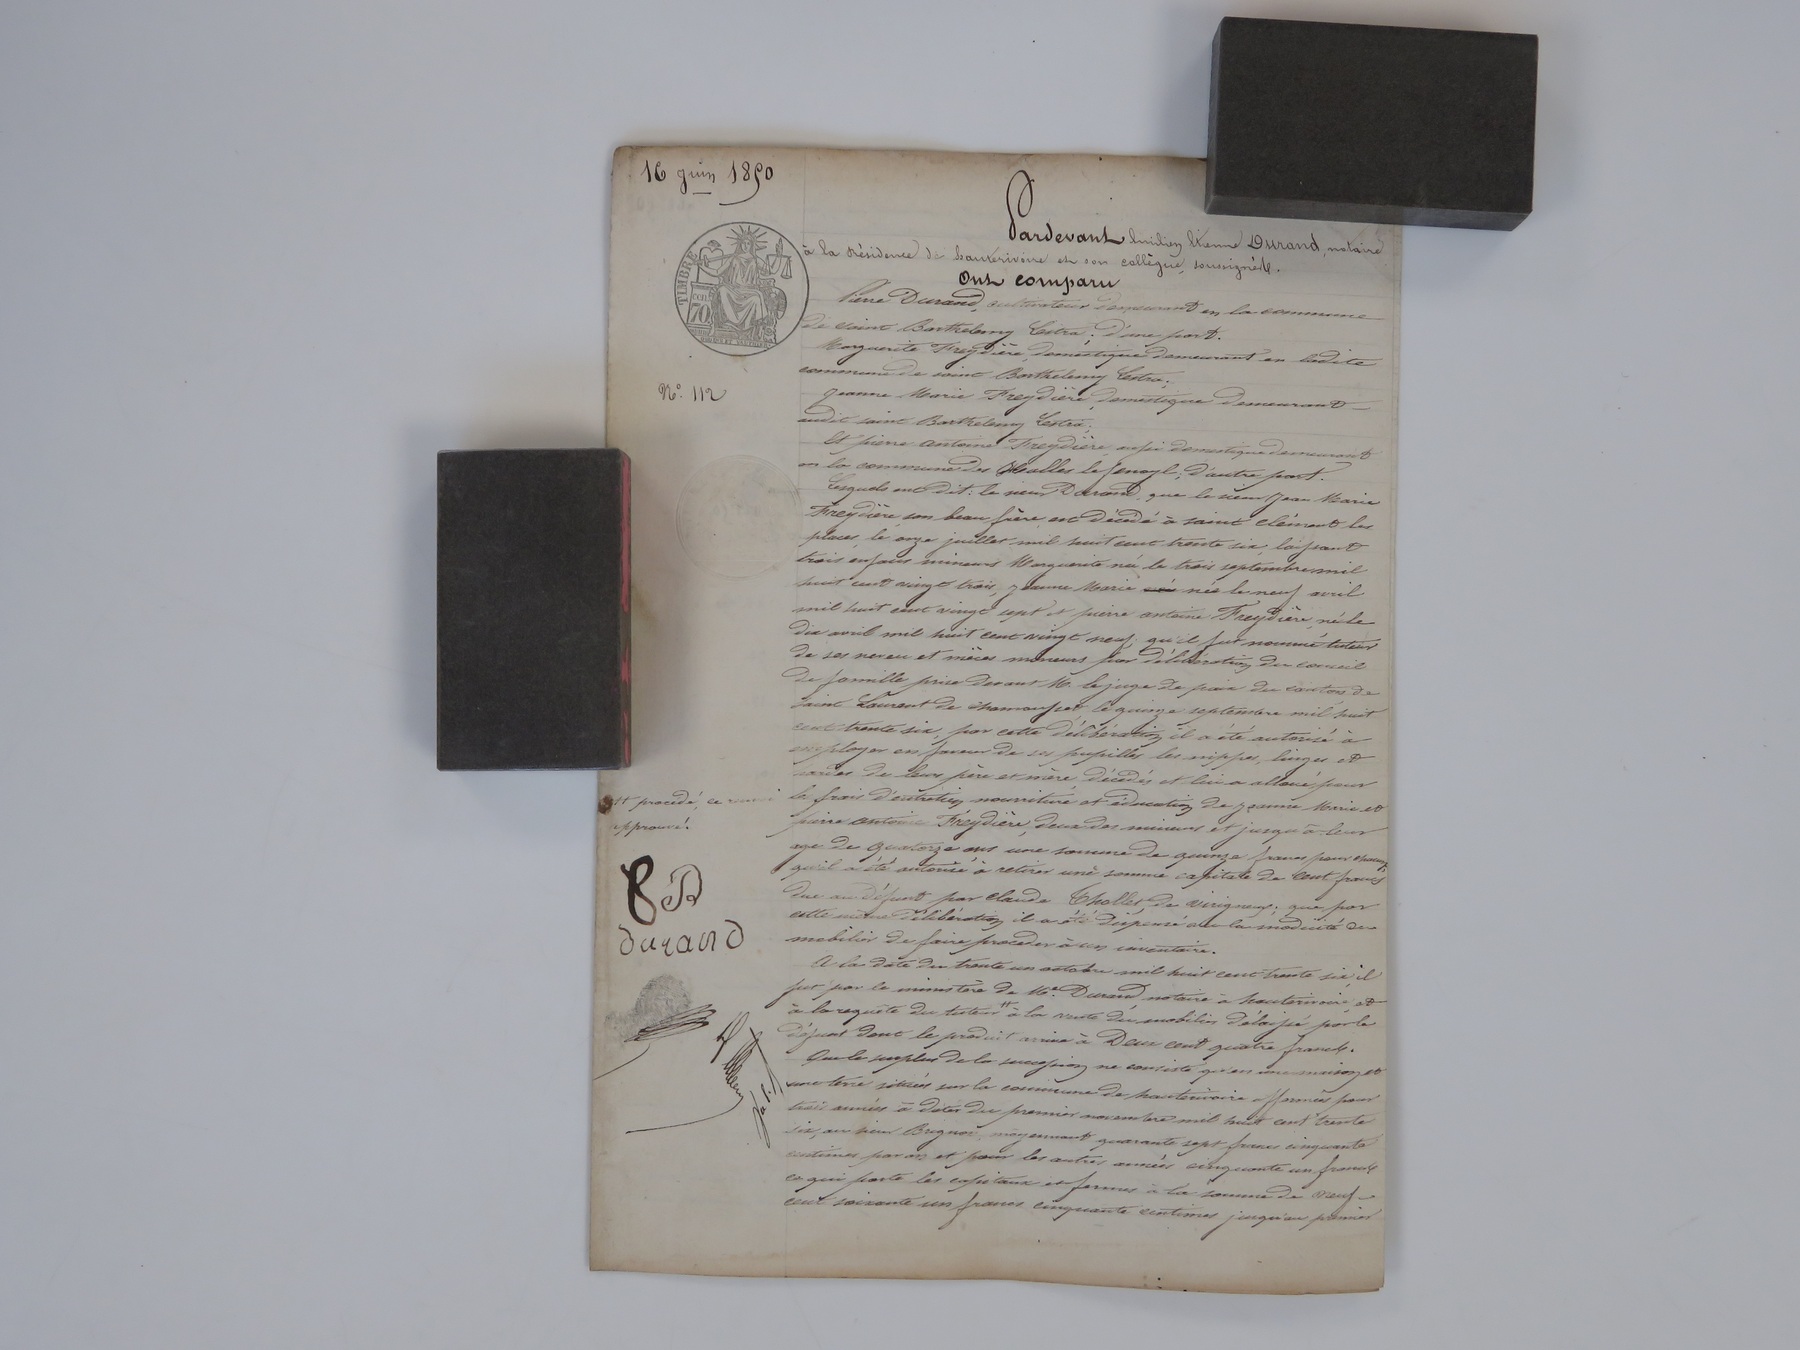 16 juin 1850
Pardevant Emilien Etienne Durand, notaire
à la résidence de hauterivoire et son collègue, soussignés.
Ont comparu
TIMBRE
70
N° 112
Pierre Durand, cultivateur demeurant en la commune
de saint Barthelemy Lestra; d'une part.
Marguerite Freydière, domestique demeurant en ladite
commune de saint Barthelemy Lestra;
Jeanne Marie Freydière, domestique demeurant
audit saint Barthelemy Lestra;
Et pierre antoine Freydière, aussi domestique demeurant
en la commune des Halles le fenoyl; d'autre part.
Lesquels ont dit: le sieur Durand, que le sieur Jean Marie
Freydière son beau frère est décédé à saint clément les
places, le onze juillet mil huit cent trente six, laissant
trois enfans mineurs Marguerite née le trois septembre mil
huit cent vingt trois, Jeanne Marie née le neuf avril
mil huit cent vingt sept et pierre antoine Freydière, né le
dix avril mil huit cent vingt neuf; qu'il fut nommé tuteur
de ses neveu et nièces mineurs par délibération du conseil
de famille prise devant M. le juge de paix du canton de
saint Laurent de chamousset le quinze septembre mil huit
cent trente six; par cette délibération il a été autorisé à
employer en faveur de ses pupilles les nippes, linges et
hardes de leurs père et mère décédés et lui a alloué pour
le frais d'entretien nourriture et éducation de Jeanne Marie et
pierre antoine Freydière, deux des mineurs et jusqu'à leur
age de quatorze ans une somme de quinze francs pour chacun,
qu'il a été autorisé à retirer une somme capitale de cent francs
due au défunt par claude Thollet de virigneux; que par
cette même délibération il a été dispensé vu la modicité du
mobilier de faire procéder à un inventaire.
A la date du trente un octobre mil huit cent trente six, il
fut par le ministère de Me. Durand notaire à hauterivoire, et
à la requête du tuteur # à la vente du mobilier délaissé par le
défunt dont le produit arrive à Deux cent quatre francs.
Que le surplus de la succession ne consiste qu'en une maison et
une terre situées sur la commune de hauterivoire affermées pour
trois années à dater du premier novembre mil huit cent trente
six, au sieur Brignon, moyennant quarante sept francs cinquante
centimes par an et pour les autres années cinquante un francs
ce qui porte les capitaux et fermes à la somme de neuf
cent soixante un francs cinquante centimes jusqu'au premier
# procédé, ce renvoi
approuvé.
durand